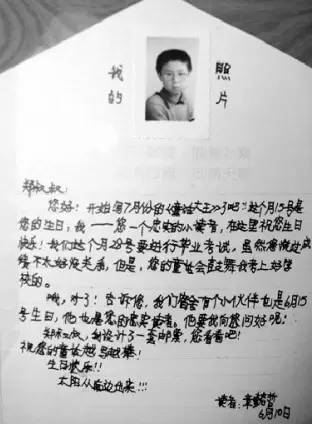 我的
照片
郑叔叔:
您好!开始写7月份的《童话大王》了吧?这个月15号是
您的生日,我——您一个忠实的小读者,在这里祝您生日
快乐!我们这个月28号要进行毕业考试,虽然您说过成
绩不太好没关系,但是,您的童话会鼓舞我考上好学
校的。
哦,对了!告诉您,我们宿舍有个小伙伴也是6月15
号生日,他也是您的忠实读者。他要我向您问好呢!
郑叔叔,我设计了一套邮票,您看看吧!
祝您的童话越写越棒!
生日快乐!!
太阳从南边出来!!!
读者:章
6月10日